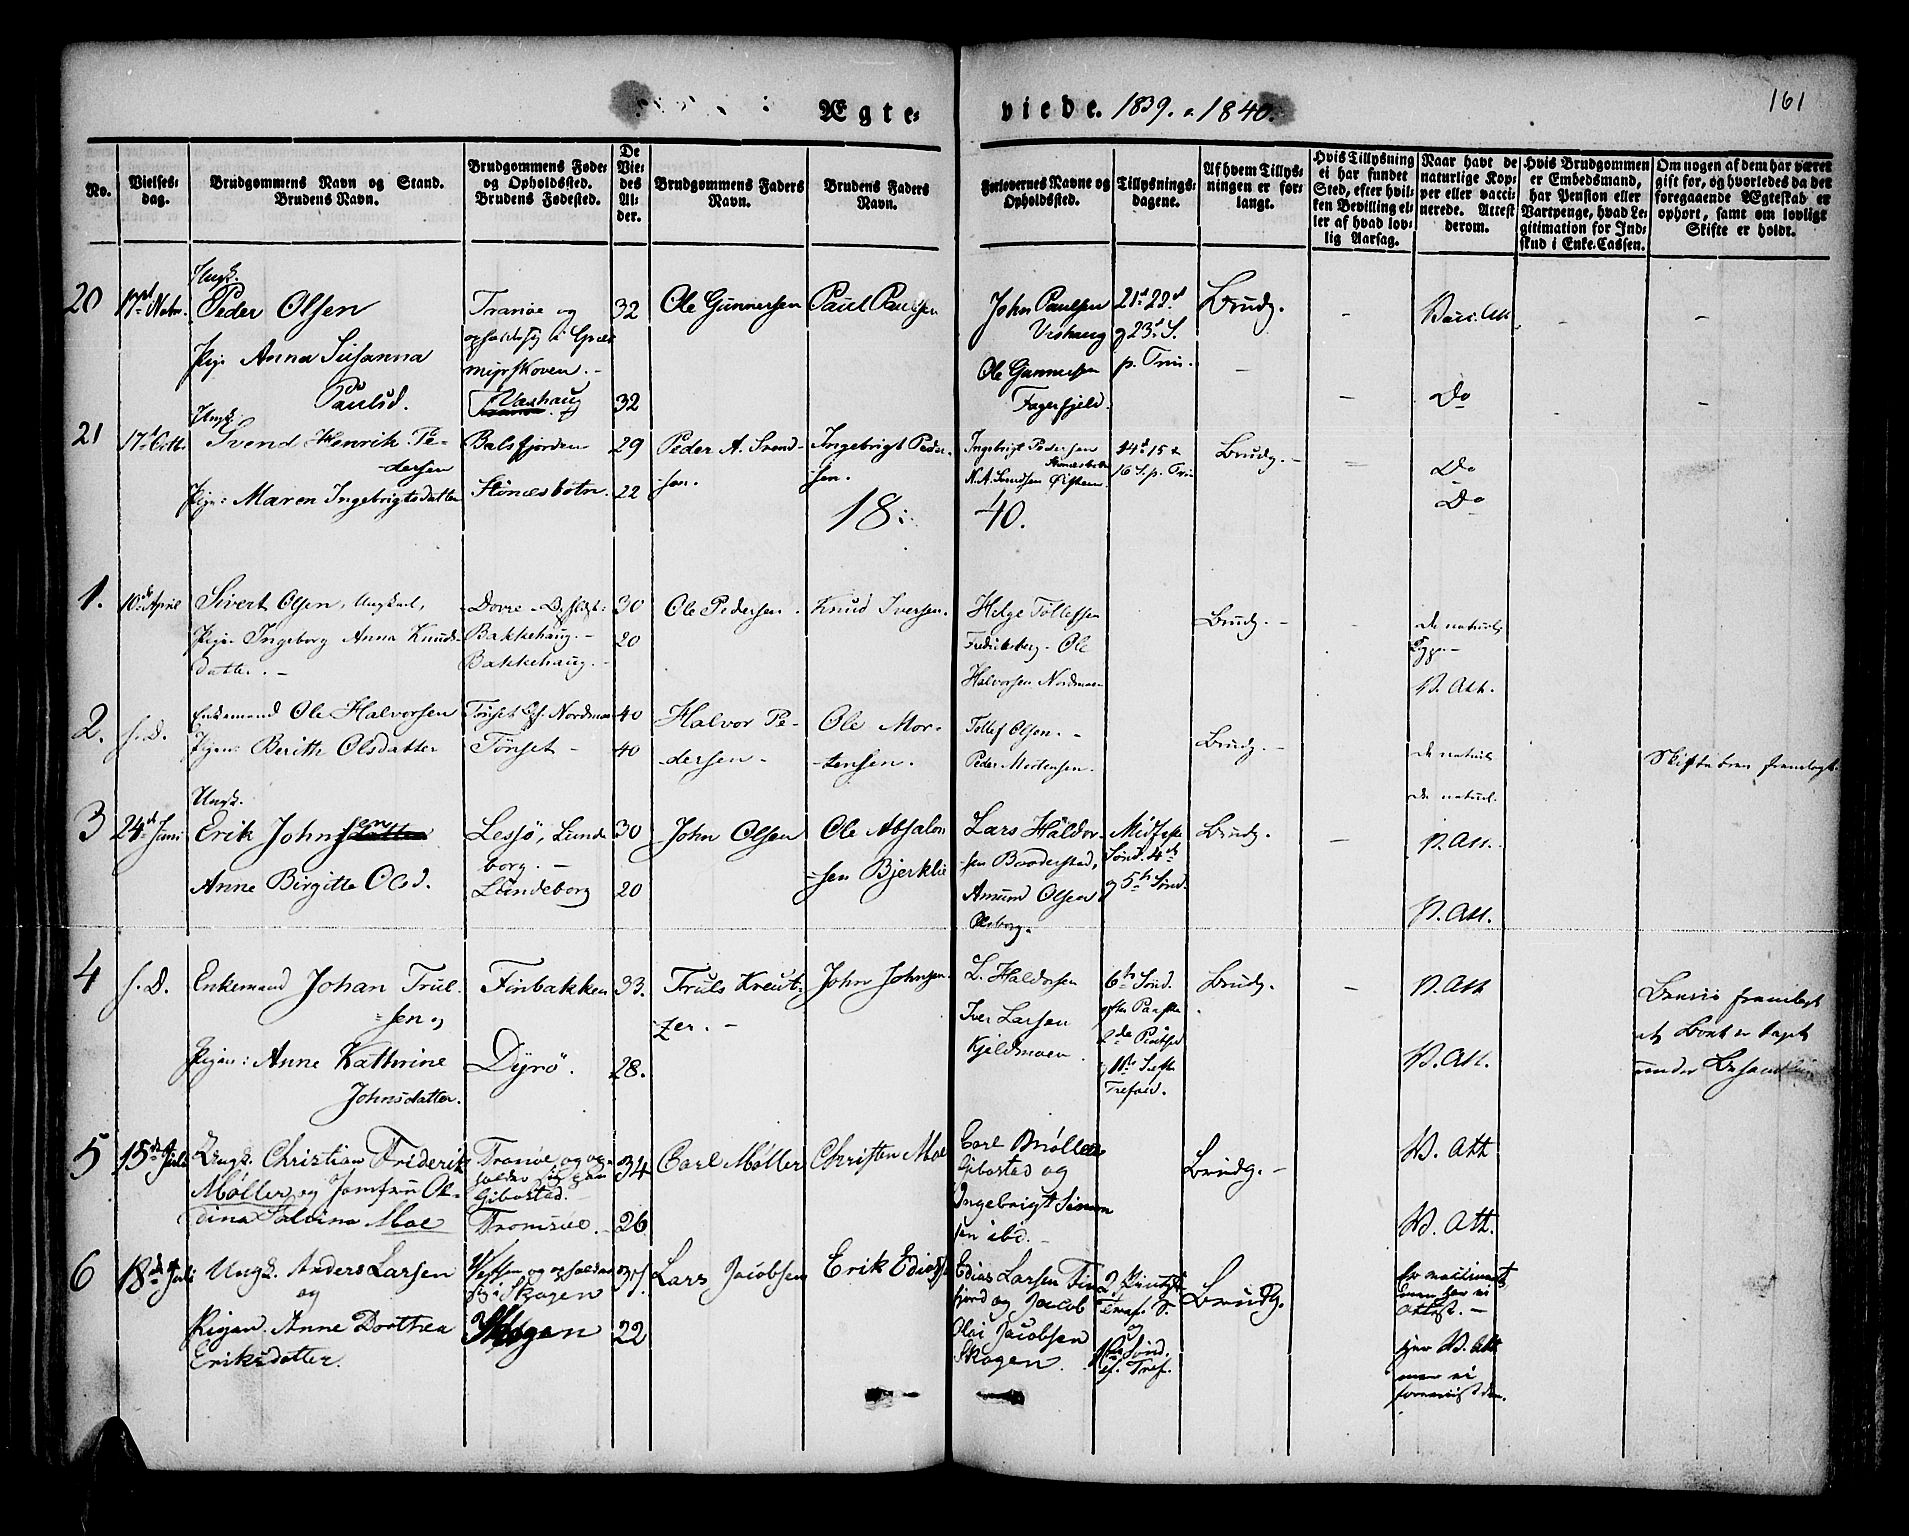 Ægte-
viede. 1839. & 1840.
161
No.
Vielses-
dag.
Brudgommens Navn og Stand.
Brudens Navn.
Brudgommens Føde-
og Opholdssted.
Brudens Fødested.
De
Vie-
des
Al-
der.
Brudgommens Faders
Navn.
Brudens Faders
Navn.
Forlovernes Navne og
Opholdssted.
Tillysnings-
dagene.
Af hvem Tillys-
ningen er for-
langt.
Hvis Tillysning
ei har fundet
Sted, efter hvil-
ken Bevilling el-
ler af hvad lov-
lig Aarsag.
Naar havt de
naturlige Kop-
per eller vacci-
nerede. Attest
derom.
Hvis Brudgommen
er Embedsmand,
har Pension eller
Vartpenge, hvad Le-
gitimation for Ind-
skud i Enke-Cassen.
Om nogen af dem har været
gift før, og hvorledes da det
foregaaende Ægteskab er
ophørt, samt om lovligt
Skifte er holdt.
20
17de Nobr.
Ungk.
Peder Olsen
Pige Anna Susanna
Paulsd.
Tranøe og
opholdsig i
myrskoven.
Vashaug
32
32
Ole Gunnersen
Paul Paulsen
John Paulsen
Ole Gunnersen
Fagerfjeld.
21de 22de
og 23de S.
p. Trin.
Brudg.
Vacc. Att.
Do
21
17de Octb.
Ungk.
Svend Henrik Pe-
dersen
Pige: Maren Ingebrigtsdatter
Balsfjorden
Stønesbotn.
29
22
Peder A. Svend-
sen.
Ingebrigt Peder-
sen.
Ingebrigt Pedersen
Stønesbotn
14de 15 &
16 S. p. Trin
Brudg.
Do
Do
18:
40.
1.
10de April
Sivert Olsen, Ungkarl,
Pige Ingeborg Anna Knuds-
datter.
Dovre
Bakkehaug.
Bakkehaug.
30
20
Ole Pedersen.
Knud Iversen.
Helge Tollefsen
Fredriksberg. Ole
Halvorsen Nordmoen
Brudg.
De naturl.
V. Att.
2.
s. D.
Enkemand Ole Halvorsen
Pigen: Berith Olsdatter
Tønset Nordmoe
Tønset
40
40
Halvor Pe-
dersen.
Ole Mor-
tensen.
Tollef Olsen.
Peder Mortensen.
Brudg.
De naturl.
De naturl.
Skiftebrev fremlagt.
3
24de Juni
Ungk.
Erik Johnsen
Anne Birgitte Olsd.
Lesjø, Lunde
borg.
Lundeborg
30
20
John Olsen
Ole Absalon-
sen Bjerklie
Lars Haldor-
sen
Amund Olsen
Olsborg.
Midfaste
Sønd. 4de
og 5te Sønd.
Brudg.
V. Att.
V. Att.
4
s. D.
Enkemand Johan Trul-
sen og
Pigen: Anne Kathrine
Johnsdatter.
Finbakken
Dyrø.
33.
28.
Truls Kreut-
zer.
John Johnsen.
L. Haldorsen
Iver Larsen
Kjeldmoen.
6te Sønd.
efter Paaske
2de Pintsed
Trefold.
Brudg.
V. Att
V. Att.
Beviis fremlagt
at Boet er taget
under Behandling
5
15de Juli
Ungk. Christian Friderik
Møller og Jomfru Ol-
dina Salvina Moe
Tranøe og op-
holder sig paa
Gibostad.
Tromsøe.
34
26
Carl Møller
Christen Moe
Carl Møller
Gibostad og
Ingebrigt Simon-
sen ibd.
Brudg.
V. Att
V. Att.
6
18de Juli
Ungk. Anders Larsen
og
Pigen. Anne Dorthea
Eriksdatter.
Vefsen og opholder
sig i Skogen
Skogen
22
Lars Jacobsen
Erik Edias
Edias Larsen Fin
fjord og Jacob
Olai Jacobsen
Skogen.
2. Pintsd.
Trinit. S.
og
1ste Sønd.
ef. Tref.
Brudg.
Er vaccineret
men har ei
Attest.
har V. Att
men ei
foreviist den.